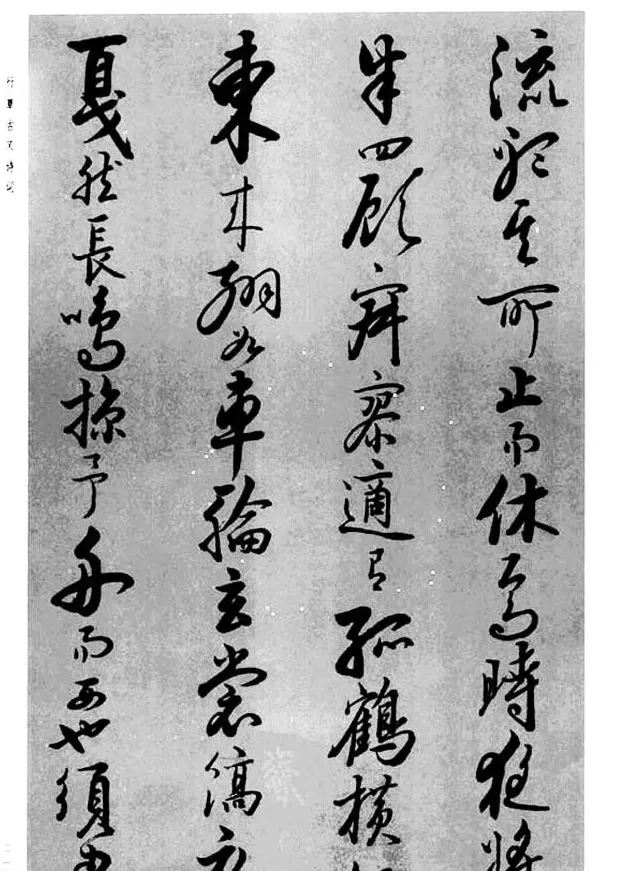 流聽其所止而休焉時夜將
半四顧寂寥適有孤鶴橫
東來翅如車輪玄裳縞衣
戛然長鳴掠予舟而西也須
行草古文诗词